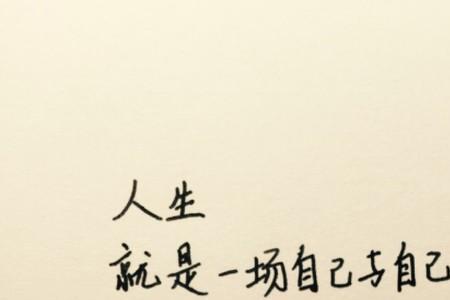 人生
就是一场自己与自己